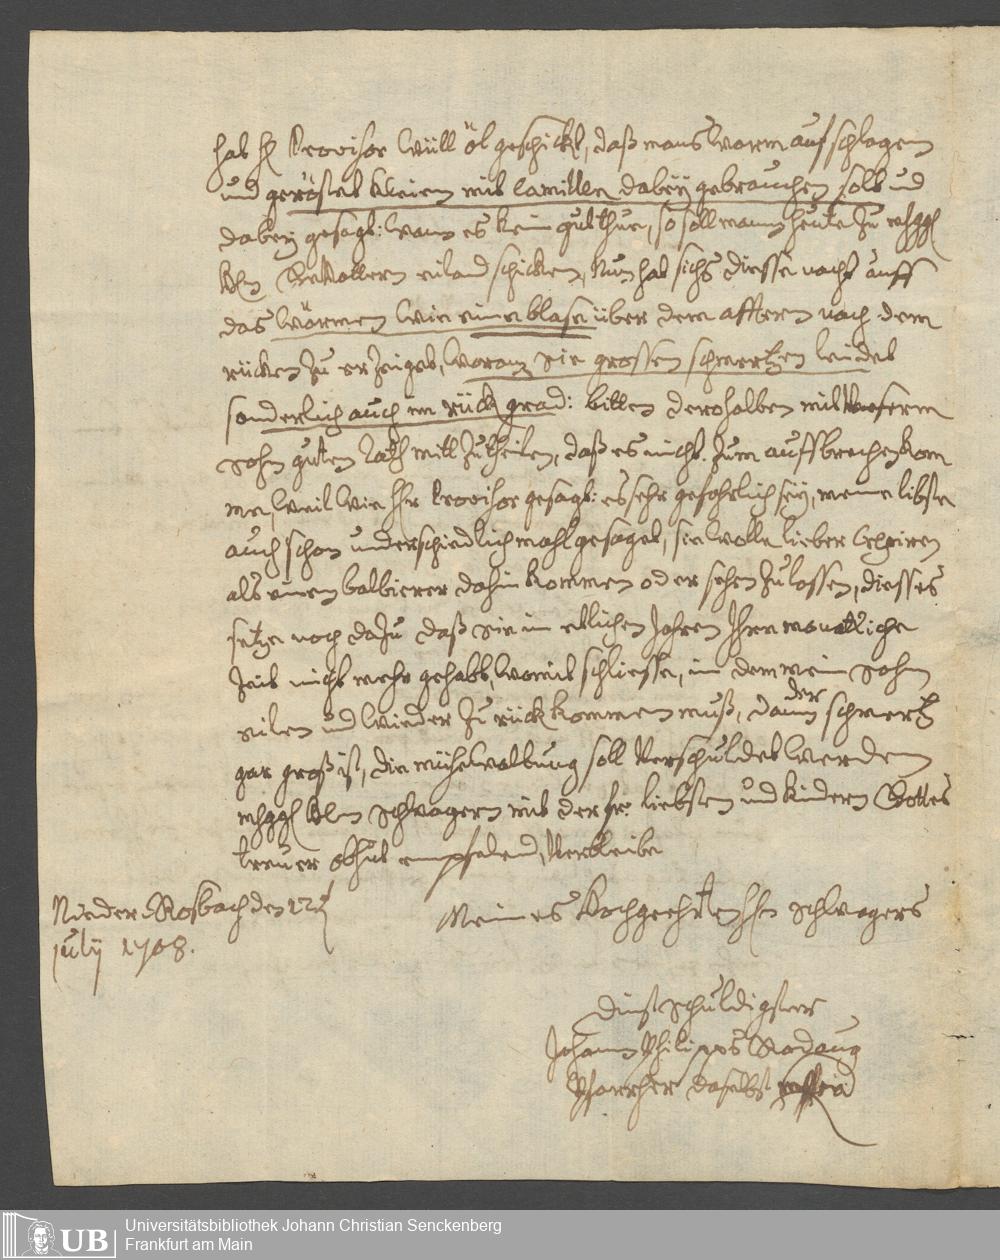 hab H Provisor Wüll öl geschickt, daß mans warm aufschlagen
und geröstet kleien mit Camillen dabey gebrauchen soll und
dabey gesagt: wann es kein gut thue, so soll mann heute zu
eiland schicken, Nun hat sichs diesse nacht auff
das wärmen wie eine blase über dem afftern nach dem
rücken zu erzeiget, woran sie grossen schmertzen leidet
sonderlich auch im rück grad: bitten derohalben mit Unserm
sohn guten rath mitt zutheilen, daß es nicht zum auffbrechen kom
me, weil wie Hr Provisor gesagt: es sehr gefährlich sey, meine libste
auch schon underschiedlich mahl gesaget, sie wolle lieber
als einen balbierer dahin kommen oder sehen zulassen, diesses
setze noch dazu daß sie in etlichen Jahren Ihre monatliche
Zeit nicht mehr gehabt, womit schliesse, in dem mein sohn
eilen und wieder zurück kommen muß, dann der schmertz
gar groß ist, die mühewaltung soll Verschuldet werden
schwagern mit der fr. liebsten und kindern Gottes
treuer obhut empfelend, Verbleibe
Nieder Rosbach den 22
july 1708.
Meines Hochgeehrten Hn schwagers
dinstschuldigster
Johann Philipps
Pfarrher daselbst
Universitätsbibliothek Johann Christian Senckenberg
Frankfurt am Main
UB